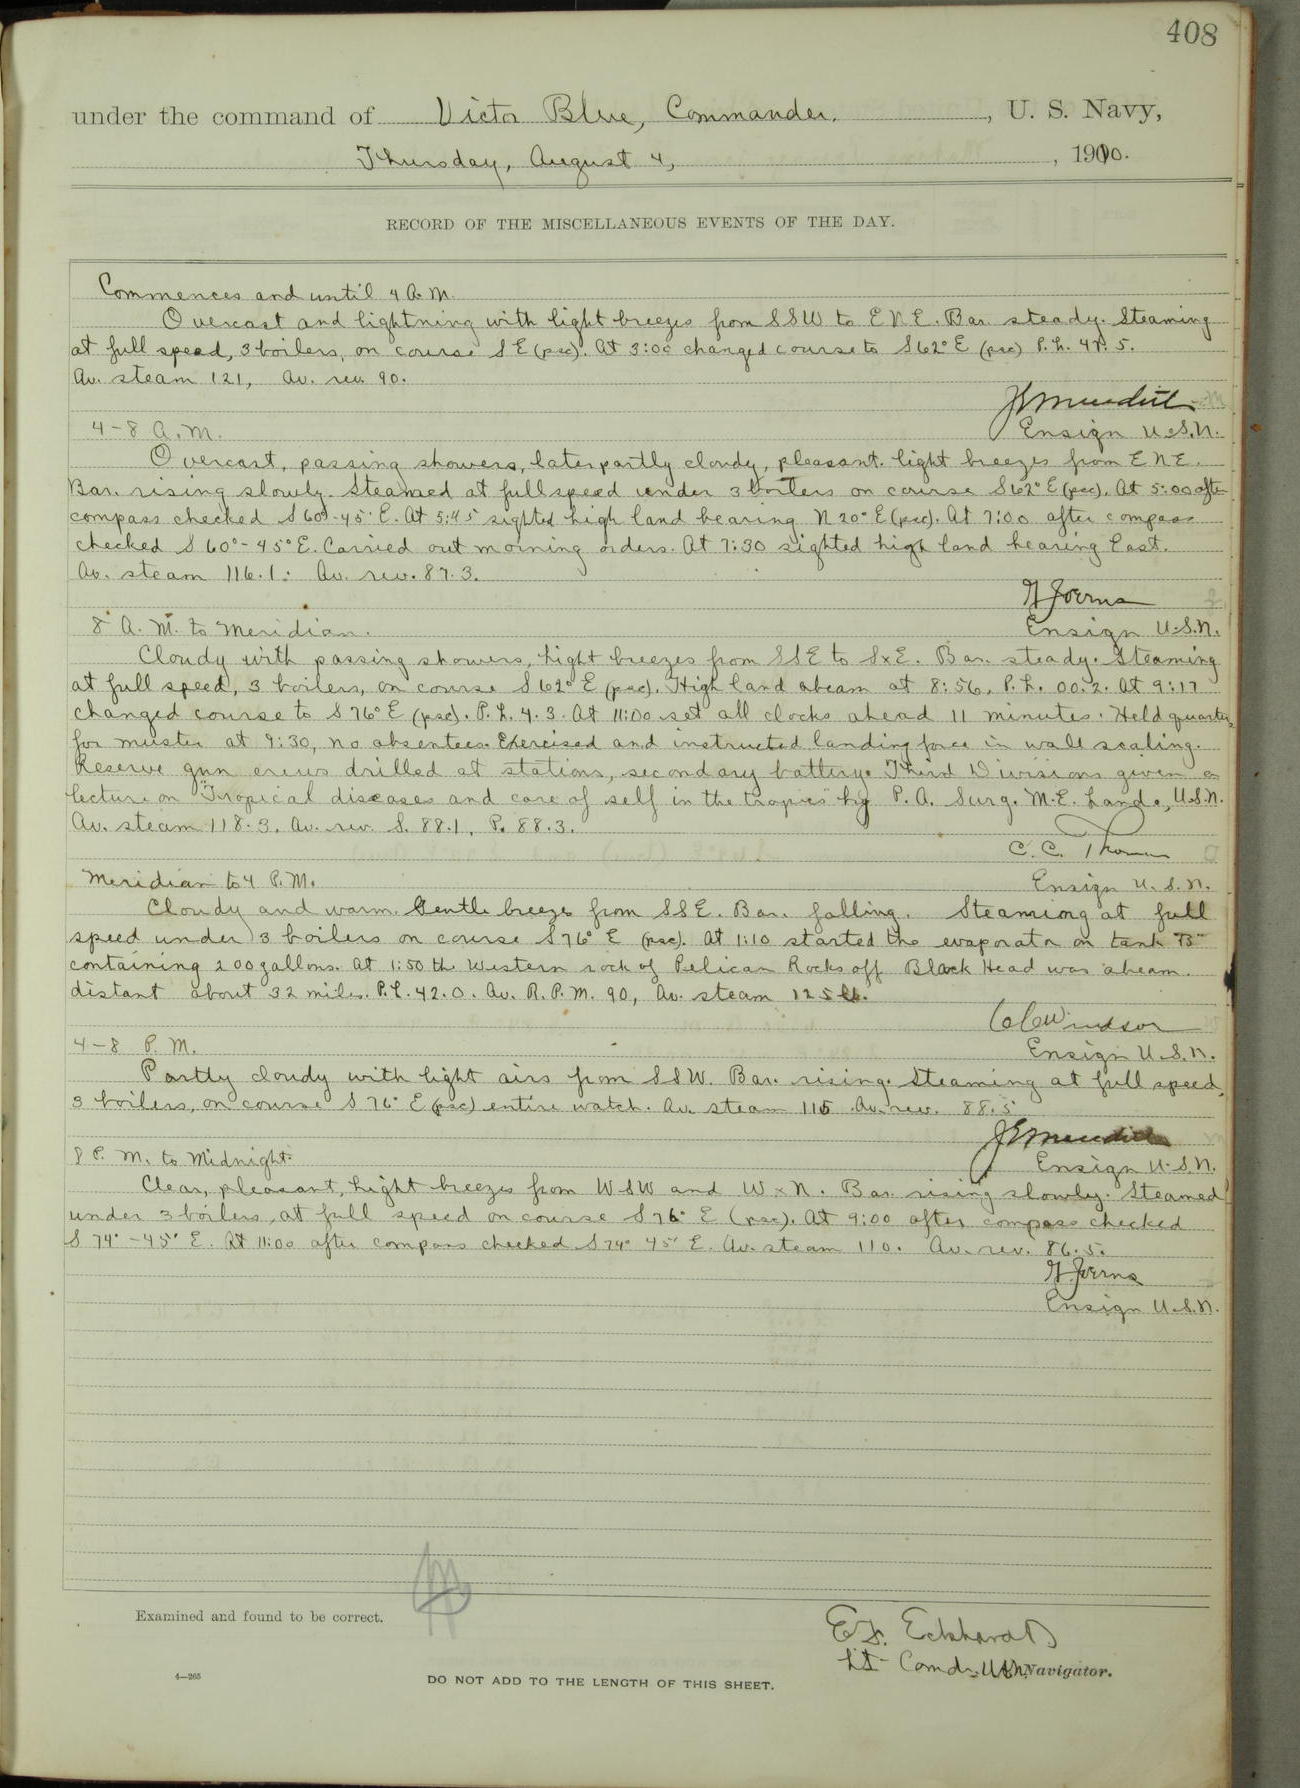 408
under the command of Victor Blue, Commander, U. S. Navy,
Thursday, August 4, , 1910.
RECORD OF THE MISCELLANEOUS EVENTS OF THE DAY.
Commences and until 4 A.M.
Overcast and lightning with light breezes from SSW to ENE. Bar. steady. Steaming
at full speed, 3 boilers, on course SE (psc). At 3:00 changed course to S 62° E (psc) P.L. 47.5.
Av. steam 121, Av. rev. 90.
JEMeredith
Ensign U.S.N.
4-8 A.M.
Overcast, passing showers, later partly cloudy, pleasant. light breezes from ENE.
Bar. rising slowly. Steamed at full speed under 3 boilers on course S 62° E (psc). At 5:00 after
compass checked S 60°-45' E. At 5:45 sighted high land bearing N 20° E (psc). At 7:00 after compass
checked S 60°-45° E. Carried out morning orders. At 7:30 sighted high land bearing East.
Av. steam 116.1: Av. rev. 87.3.
H Joerns
Ensign U.S.N.
8 A. M. to Meridian.
Cloudy with passing showers, light breezes from SSE to SxE. Bar. steady. Steaming
at full speed, 3 boilers, on course S 62° E (psc). High land abeam at 8:56, P.L. 00.2. At 9:17
changed course to S 76° E (psc). P.L. 4.3. At 11:00 set all clocks ahead 11 minutes. Held quarters
for muster at 9:30, no absentees. Exercised and instructed landing force in wall scaling.
Reserve gun crews drilled at stations, secondary battery. Third Divisions given a
lecture on "Tropical diseases and care of self in the tropics" by P. A. Surg. M.E. Lando, U.S.N.
Av. steam 118.3. Av. rev. S. 88.1, P. 88.3.
C. C. Thomas
Ensign U. S. N.
Meridian to 4 P.M.
Cloudy and warm. Gentle breeze from SSE. Bar. falling. Steaming at full
speed under 3 boilers on course S 76° E (psc). At 1:10 started the evaporator on tank "B"
containing 200 gallons. At 1:50 the Western rock of Pelican Rocks off Black Head was abeam.
distant about 32 miles. P.L. 42.0. Av. R.P.M. 90, Av. steam 125
CCWindsor
Ensign U.S.N.
4-8 P. M.
Partly cloudy with light airs from SSW. Bar. rising. Steaming at full speed,
3 boilers, on course S 76° E (psc) entire watch. Av. steam 115 Av. rev. 88.5
JEMeredith
Ensign U.S.N.
8 P. M. to Midnight.
Clear, pleasant, light breezes from WSW and WxN. Bar. rising slowly. Steamed
under 3 boilers, at full speed on course S 76° E (psc). At 9:00 after compass checked
S 74°-45' E. At 11:00 after compass checked S 74° 45' E. Av. steam 110. Av. rev. 86.5.
H Joerns
Ensign U.S.N.
Examined and found to be correct.
E.F. Eckhardt
Lt. Comdr. U.S.N. Navigator.
4—265
DO NOT ADD TO THE LENGTH OF THIS SHEET.